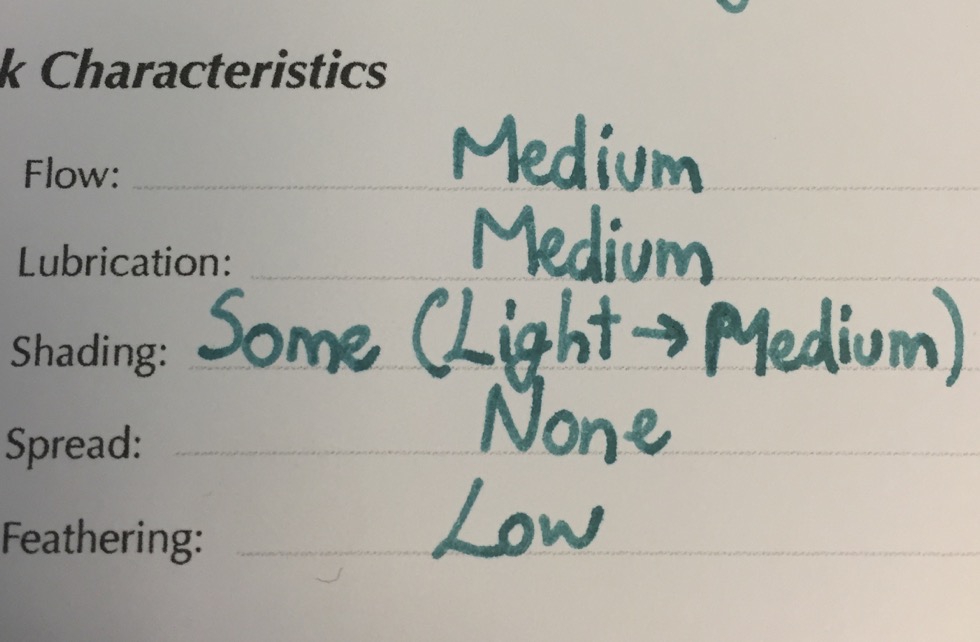 k Characteristics
Flow: Medium
Lubrication: Medium
Shading: Some (Light → Medium)
Spread: None
Feathering: Low